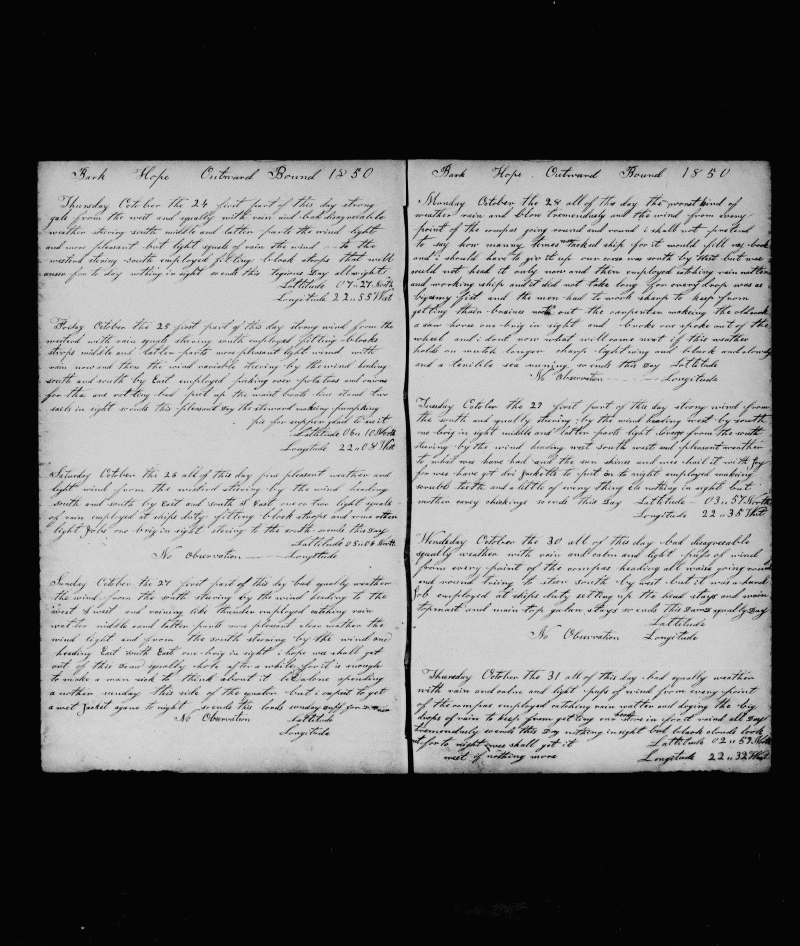 Bark Hope Outward Bound 1850
Thursday October the 24 first part of this day strong
gale from the west and squally with rain and bad disagreeable
weather stering south middle and latter parts the wind light
and more pleasant but light squals of rain the wind to the
westerd stering south employed fitting block strops that will
answer for to day nothing in sight so ends this Day all right
Lattitude 07 " 27 North
Longitude 22 " 55 West
Friday October the 25 first part of this day strong wind from the
westerd with rain squals stering south employed fitting blocks
strops middle and latter parts more pleasant light wind with
rain now and then the wind variable stering by the wind heding
south and south by East employed picking over potatoes and onions
for tha are rotting bad put up the waist boats line stand two
sails in sight so ends this pleasant Day the steward making pumpking
pie for supper glad to see it
Lattitude 06 " 10 North
Longitude 22 " 04 West
Saturday October the 26 all of this day fine pleasant weather and
light wind from the westerd stering by the wind heading
south and south by East and south S East one or two light squals
of rain employed at ships duty fitting block strops and some other
light Jobs one brig in sight stering to the south so ends this Day
Lattitude 05 " 06 North
No Obervation Longitude
Sunday October the 27 first part of this day bad squally weather
the wind from the south stering by the wind heading to the
west S west and raining like thunder employed catching rain
watter middle and latter parts more pleasant clear weather the
wind light and from the south stering by the wind and
heeding East south East one brig in sight i hope we shall get
out of this Dam squally hole after a while for it is enough
to make a man sick to think about it let alone spending
a nother sunday this side of the quator but i expect to get
a wet Jacket agane to night so ends this sunday
No Obervation Lattitude
Longitude
Bark Hope Outward Bound 1850
Monday October the 28 all of this day the worst kind of
weather rain and blow tremendusly and the wind from every
point of the compas going round and round i shall not pretend
to say how manny times we tacked ship for it would fill my book
and i should have to give it up our corse was south by West but wee
could not head it only now and then employed catching rain watter
and working ship and it did not take long for every drop was as
big as my fist and the men had to work sharp to keep from
getting thair brains nockt out the carpenter makeing the old cook
a saw horse one brig in sight and broke one spoke out of the
wheel and i dont now what will come next if this weather
holds on mutch longer sharp lightning and black and clowdy
and a terible sea runing so ends this Day Lattitude
No Obervation Longitude
Tuesday October the 29 first part of this day strong wind from
the south and squally stering by the wind heading west by south
one brig in sight middle and latter part light breeze from the south
stering by the wind heading west south west and pleasant weather
to what we have had and the sun shines and wee hail it with Joy
for wee have got dri Jackitts to put on to night employed makeing
scrub teeth and a little of every thing els nothing in sight but
mother carey chickings so ends this Day Lattitude 03 " 57 North
Longitude 22 " 35 West
Wendsday October the 30 all of this day bad disagreeable
squally weather with rain and calm and light pufs of wind
from every point of the compas heading all wais going round
and round triing to steer south by west but it was a hard
Job employed at ships duty setting up the head stays and main
topmast and main top galan stays so ends this Dam squally Day
Lattitude
No Obervation Longitude
Thursday October the 31 all of this day bad squally weather
with rain and calm and light pufs of wind from every point
of the compas employed catching rain watter and doging the big
drops of rain to keep from getting our heads stove in for it raind all Day
tremendusly so ends this Day nothing in sight but black clouds look
out for to night wee shall get it
wet if nothing more
Lattitude 02 " 59 North
Longitude 22 " 32 West